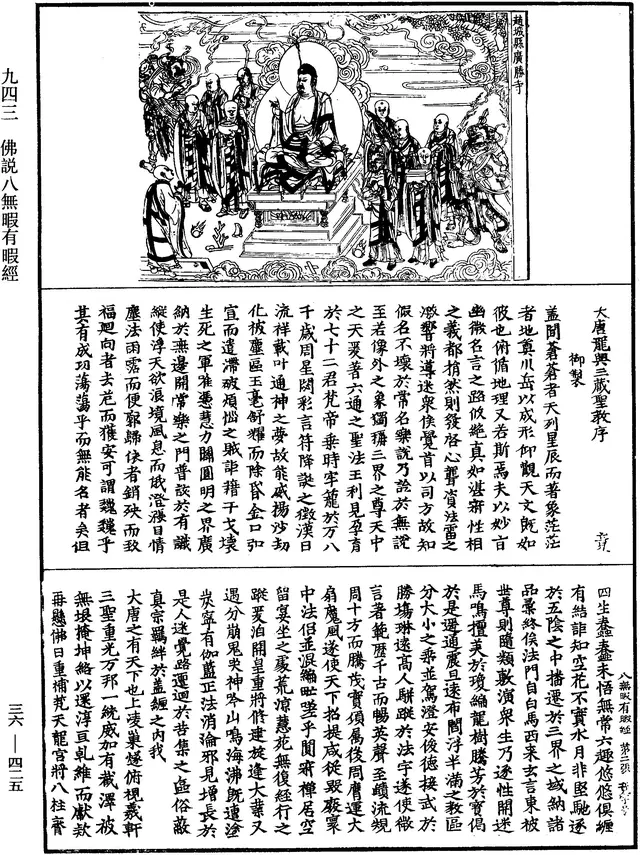 趙城縣廣勝寺
九四三　佛説八無暇有暇經
大唐龍興三藏聖教序
御製
蓋聞蒼蒼者天列星辰而著象茫茫
者地奠川岳以成形仰觀天文既如
彼也俯循地理又若斯焉夫以妙旨
幽微名言之路攸絶真如湛寂性相
之義都捐然則發啓心聾資法雷之
激響將導迷衆俟覺首以司方故知
假名不壞於常名樂説乃詮於無説
至若像外之象獨稱三界之尊天中
之天爰著六通之聖法王利見孕育
於七十二君梵帝乘時牢籠於万八
千歲周星閟彩言符降誕之徵漢日
流祥載叶通神之夢故能威揚沙劫
化被塵區玉毫舒耀而除昏金口弘
宣而遣滯破煩惱之賊詎藉干戈壞
生死之軍唯憑慧力闢圓明之界廣
納於無邊開常樂之門普該於有識
縱使浮天欲浪境風息而俄澄漲日情
塵法雨霑而便廓歸依者銷殃而致
福迴向者去危而獲安可謂巍巍乎
其有成功蕩蕩乎而無能名者矣但
八無暇有暇經　第二張
四生蠢蠢未悟無常六趣悠悠俱纏
有結詎知空花不實水月非堅馳逐
於五陰之中播遷於三界之域納諸
品彙終俟法門自白馬西來玄言東被
世尊則隨類敷演衆生乃逐性開迷
馬鳴擅美於瓊編龍樹騰芳於寶偈
於是遐通震旦遠布閻浮半滿之教區
分大小之乘並駕澄安俊德接武於
勝場琳遠高人駢蹤於法宇遂使微
言著範歷千古而暢英聲至賾流規
周十方而騰茂實頃屬後周膺運大
扇魔風遂使天下招提咸從毀廢寰
中法侶並混編甿墜乎聞寂禪居空
留宴坐之處荒涼慧苑無復經行之
蹤爰洎開皇重將修建旋逢大業又
遇分崩鬼哭神吟山鳴海沸既遭塗
炭寧有伽藍正法消淪邪見增長於
是人迷覺路遷迴於苦集之區俗蔽
真宗羈絆於蓋纏之内我
大唐之有天下也上陵巢燧俯視羲軒
三聖重光万邦一統威加有截澤被
無垠掩坤絡以還淳亘乹維而獻款
再懸佛日重補梵天龍宫將八柱齊
三六—四二五